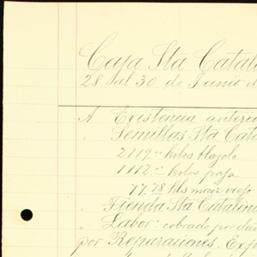 Caja Sta Catali
28 al 30 de Junio d
A Existencia anterio
" Semillas Sta Cata
2119 " kilos tlazole
1112 " kilos paja
77.78 hls maiz viejo
" Tienda Sta Catalina
" Labor: cobrado por
por Reparaciones. Exp